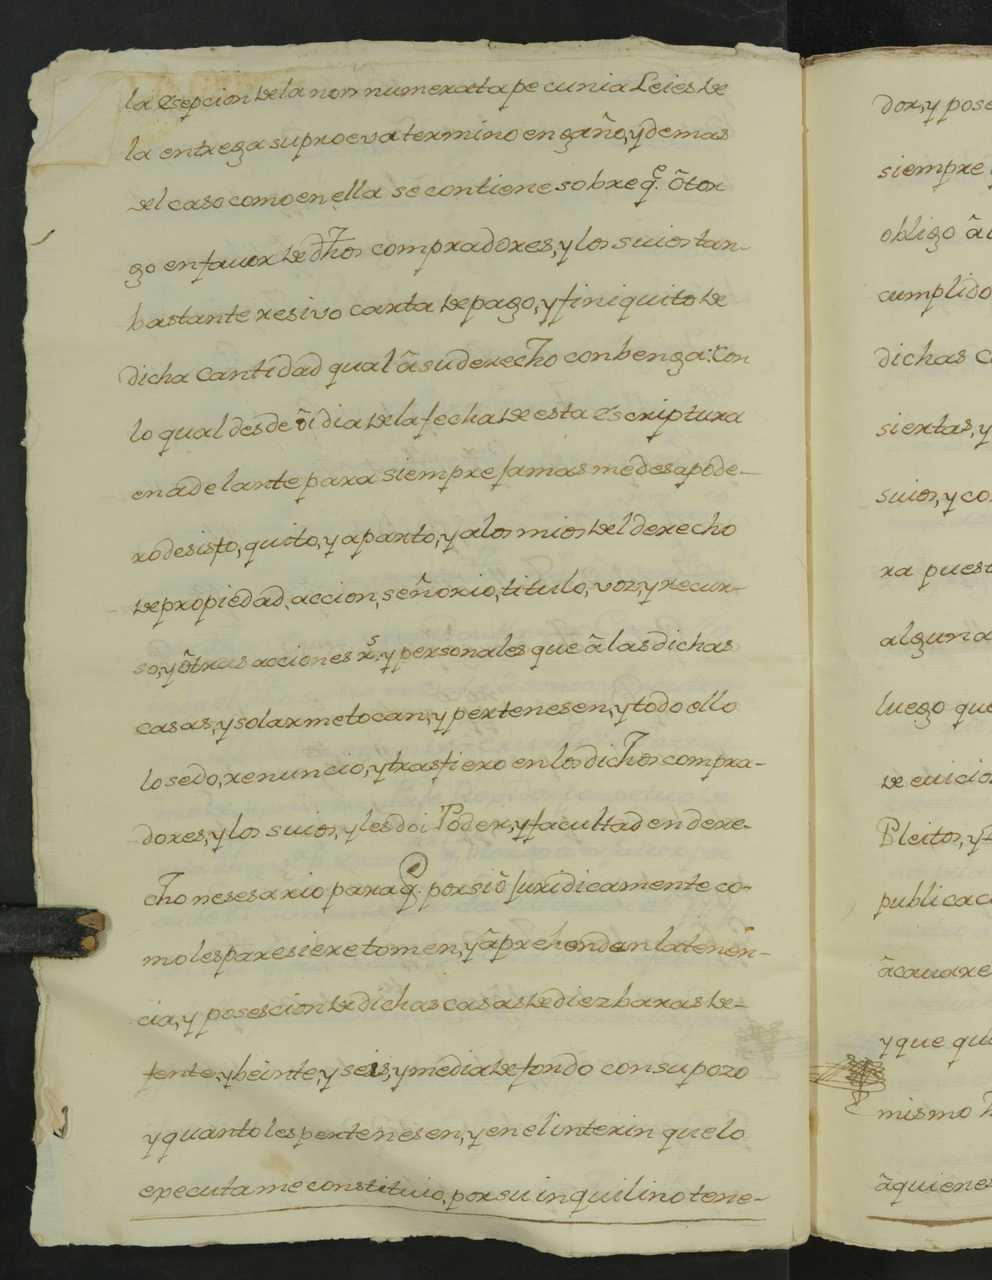 la esepcion de la non numerata pecunia Leies de
la entrega su proeva termino engaño, y demas
del caso como en ella se contiene sobre q.e ôtor
go en favor de dhos compradores, y los suios tan-
bastante resivo carta de pago, y finiquito de
dicha cantidad qual â su derecho conbenga: Con
lo qual desde ôi dia de la fecha de esta escriptura
en adelante para siempre jamas me desapode-
ro desisto, quito, y aparto, y a los mios del derecho
de propiedad, accion, señorio, titulo, voz, y recur-
so, y ôtras acciones r.s y personales que â las dichas
casas, y solar me tocan, y pertenesen, y todo ello
lo sedo, renuncio, y trasfiero en los dichos compra-
dores, y los suios, y les doi Poder, y facultad en dere-
cho nesesario para q.e por sî ô juridicamente co-
mo les paresiere tomen, y âprehendan la tenen-
cia, y posescion de dichas casas de diez baras de-
fente, y beinte, y seis, y media de fondo con su pozo
y quanto les pertenesen, y en el interin que lo
executa me constituio, por su inquilino tene-
dor, y pose
siempre
obligo â
cumplido
dichas c
siertas, y
suios, y co
ra puest
alguna
luego que
de evicio
Pleitos, y
publicac
âcavare
y que qu
mismo
â quienes